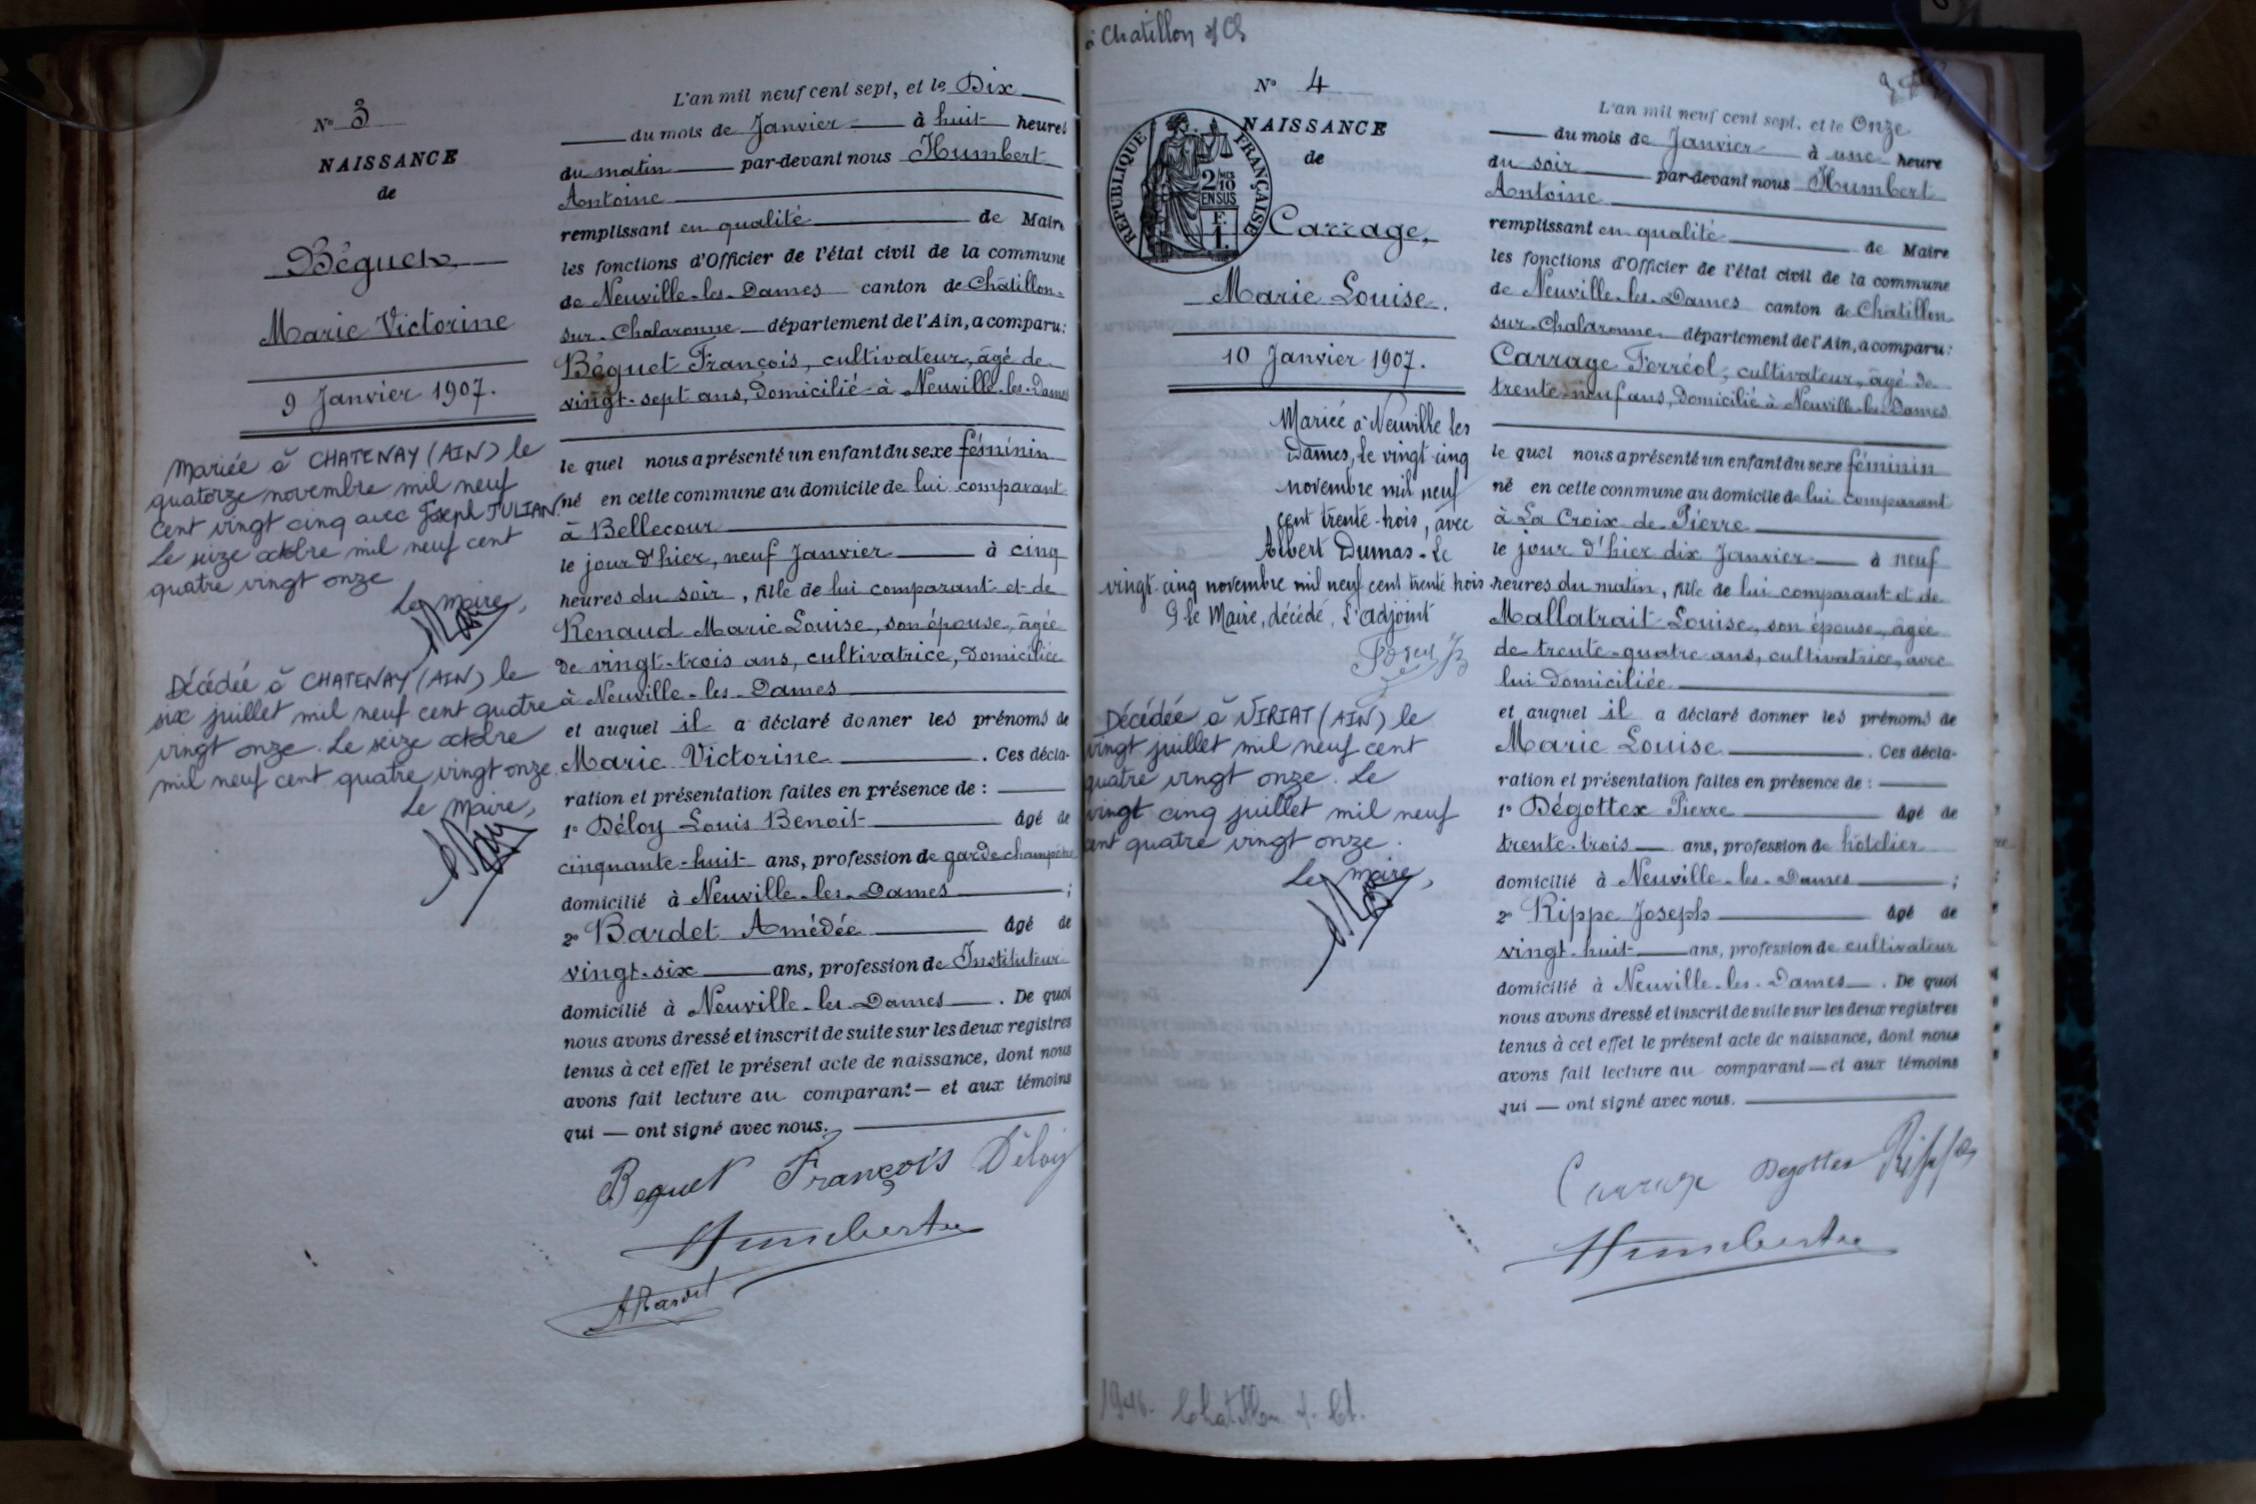 N° 3
NAISSANCE
de
Béguet
Marie Victorine
9 Janvier 1907.
Mariée à CHATENAY (AIN) le
quatorze novembre mil neuf
cent vingt cinq avec Joseph JULIAN.
Le seize octobre mil neuf cent
quatre vingt onze
Le maire,
Décédée à CHATENAY (AIN) le
six juillet mil neuf cent quatre
vingt onze. Le seize octobre
mil neuf cent quatre vingt onze.
Le maire,
L'an mil neuf cent sept, et le Dix
du mois de Janvier à huit heures
du matin par-devant nous Humbert
Antoine
remplissant en qualité de Maire
les fonctions d'Officier de l'état civil de la commune
de Neuville-les-Dames canton de Châtillon-
sur-Chalaronne département de l'Ain, a comparu:
Béguet François, cultivateur, âgé de
vingt-sept ans, domicilié à Neuville-les-Dames
le quel nous a présenté un enfant du sexe féminin
né en cette commune au domicile de lui comparant
à Bellecour
le jour d'hier, neuf Janvier à cinq
heures du soir, fille de lui comparant et de
Renaud Marie Louise, son épouse, âgée
de vingt-trois ans, cultivatrice, domiciliée
à Neuville-les-Dames
et auquel il a déclaré donner les prénoms de
Marie Victorine. Ces décla-
ration et présentation faites en présence de :
1° Déloy Louis Benoit âgé de
cinquante-huit ans, profession de garde champêtre
domicilié à Neuville-les-Dames ;
2° Bardet Amédée âgé de
vingt-six ans, profession de Instituteur
domicilié à Neuville-les-Dames. De quoi
nous avons dressé et inscrit de suite sur les deux registres
tenus à cet effet le présent acte de naissance, dont nous
avons fait lecture au comparant — et aux témoins
qui — ont signé avec nous.
Beguet François Déloy
Humbert
ABardet
à Chatillon s/ Ch
N° 4
NAISSANCE
de
RÉPUBLIQUE FRANÇAISE
2/10 MES
EN SUS
F.
1.
Carrage,
Marie Louise.
10 Janvier 1907.
Mariée à Neuville les
Dames, le vingt-cinq
novembre mil neuf
cent trente-trois, avec
Albert Dumas - Le
vingt-cinq novembre mil neuf cent trente trois
le Maire, décédé, L'adjoint
Décédée à VIRIAT (AIN) le
vingt juillet mil neuf cent
quatre vingt onze. Le
vingt cinq juillet mil neuf
cent quatre vingt onze.
Le maire,
L'an mil neuf cent sept, et le Onze
du mois de Janvier à une heure
du soir par-devant nous Humbert
Antoine
remplissant en qualité de Maire
les fonctions d'Officier de l'état civil de la commune
de Neuville-les-Dames canton de Châtillon
sur-Chalaronne département de l'Ain, a comparu:
Carrage Ferréol, cultivateur, âgé de
trente-neuf ans, domicilié à Neuville-les-Dames
le quel nous a présenté un enfant du sexe féminin
né en cette commune au domicile de lui comparant
à La Croix de Pierre
le jour d'hier dix Janvier à neuf
heures du matin, fille de lui comparant et de
Mallatrait Louise, son épouse, âgée
de trente-quatre ans, cultivatrice, avec
lui domiciliée
et auquel il a déclaré donner les prénoms de
Marie Louise. Ces décla-
ration et présentation faites en présence de :
1° Dégottex Pierre âgé de
trente-trois ans, profession de hôtelier
domicilié à Neuville-les-Dames ;
2° Rippe Joseph âgé de
vingt-huit ans, profession de cultivateur
domicilié à Neuville-les-Dames. De quoi
nous avons dressé et inscrit de suite sur les deux registres
tenus à cet effet le présent acte de naissance, dont nous
avons fait lecture au comparant — et aux témoins
qui — ont signé avec nous.
Carrage Degottex Rippe
Humbert